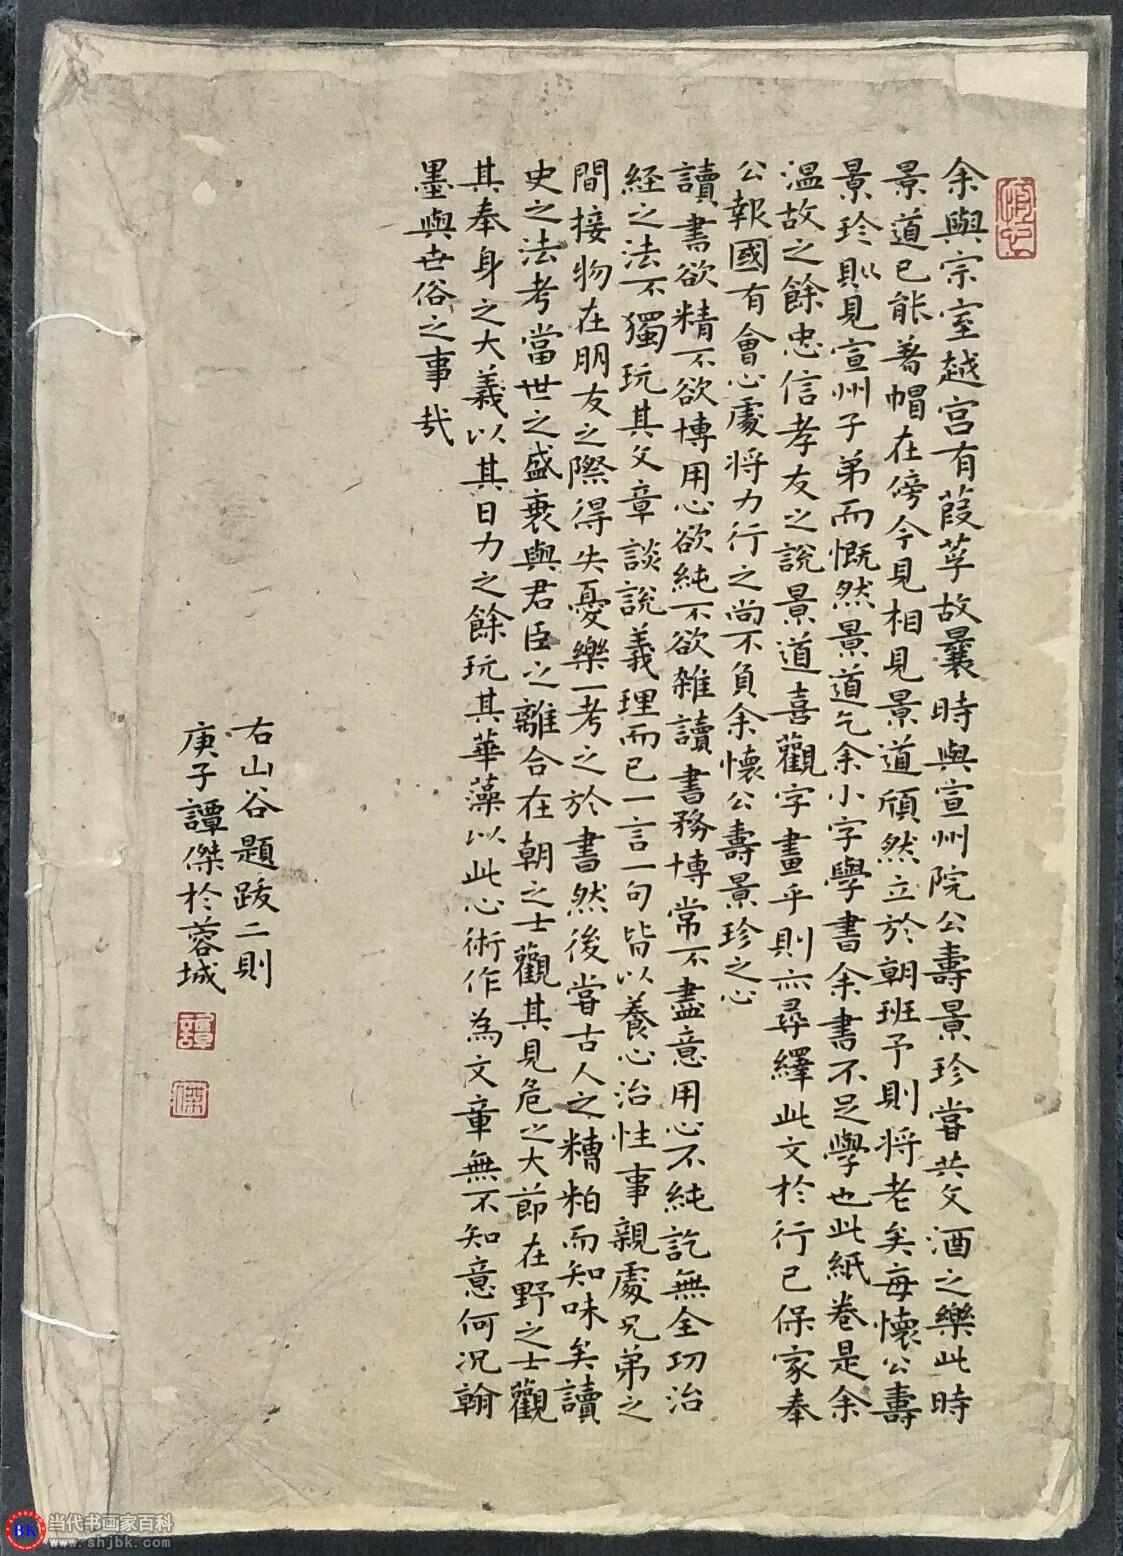 余與宗室越宫有葭莩故曩時與宣州院公壽景珍嘗共文酒之樂此時
景道已能著帽在傍今見相見景道頎然立於朝班予則将老矣每懷公壽
景珍則見宣州子弟而慨然景道乞余小字學書余書不足學也此紙卷是余
温故之餘忠信孝友之說景道喜觀字畫乎則亦尋繹此文於行己保家奉
公報國有會心處将力行之尚不負余懷公壽景珍之心
讀書欲精不欲博用心欲純不欲雜讀書務博常不盡意用心不純訖無全功治
経之法不獨玩其文章談說義理而已一言一句皆以養心治性事親處兄弟之
間接物在朋友之際得失憂樂一考之於書然後嘗古人之糟粕而知味矣讀
史之法考當世之盛衰與君臣之離合在朝之士觀其見危之大節在野之士觀
其奉身之大義以其日力之餘玩其華藻以此心術作為文章無不知意何况翰
墨與世俗之事哉
右山谷題跋二則
庚子譚傑於蓉城
譚
傑
BK
当代书画家百科
www.shjbk.com